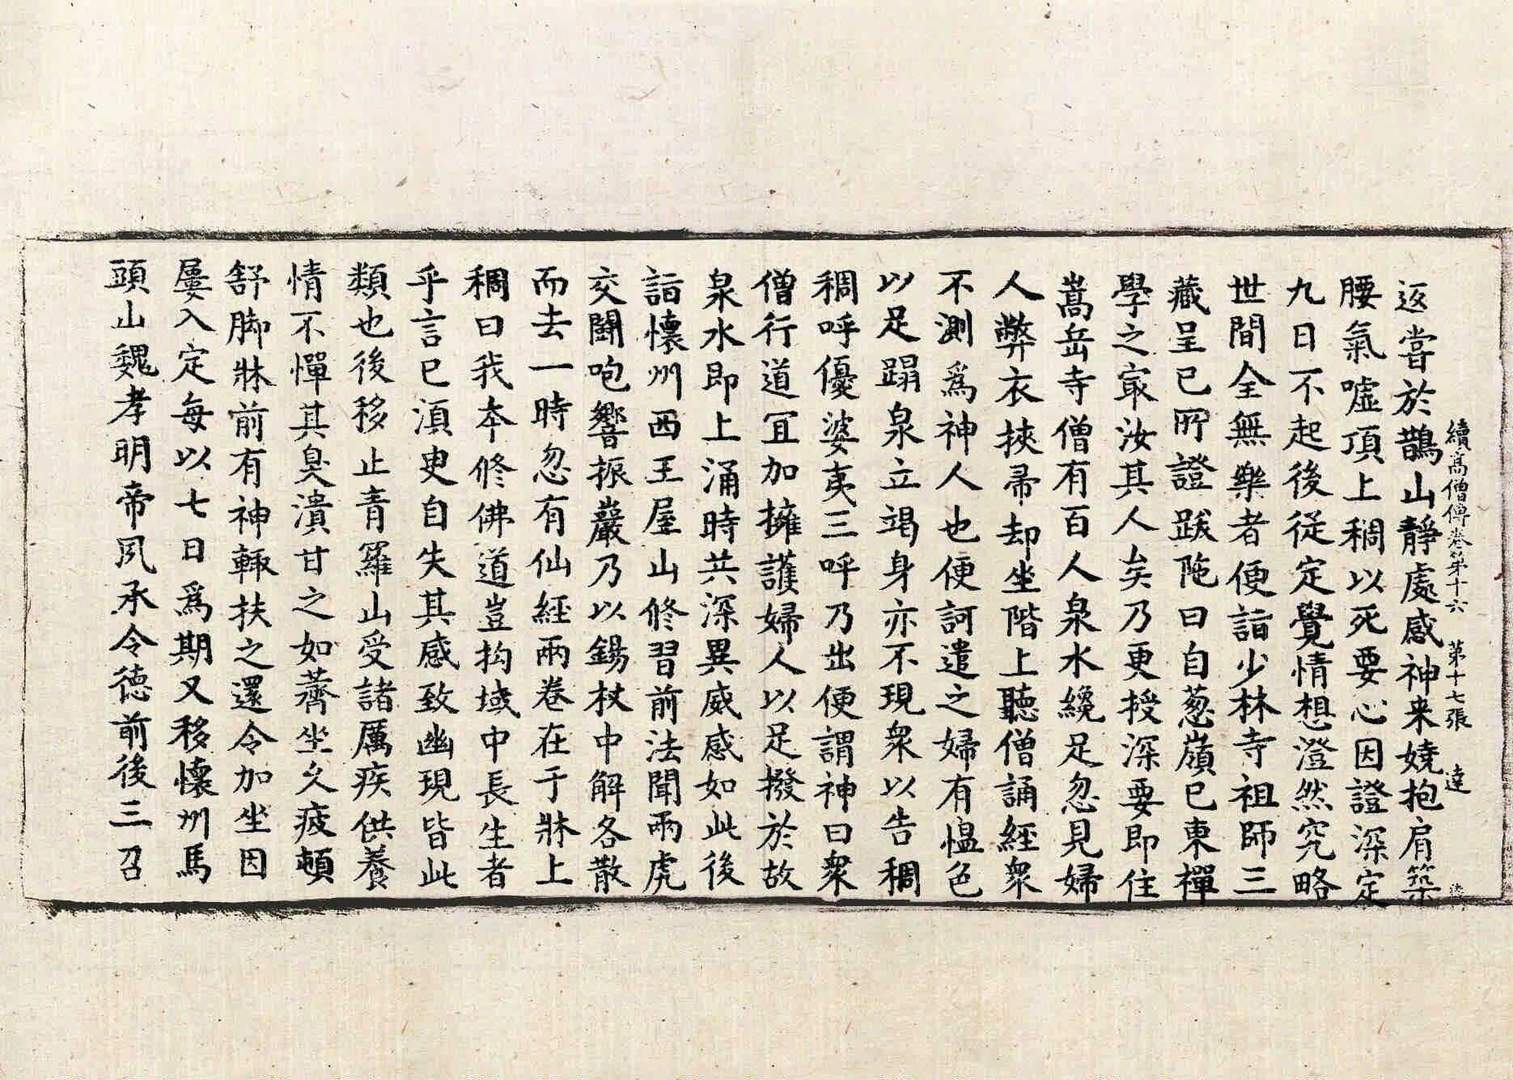 續高僧傳卷第十六 第十七張 達
返嘗於鵲山靜處感神来嬈抱肩築
腰氣噓頂上稠以死要心因證深定
九日不起後従定覺情想澄然究略
世間全無樂者便詣少林寺祖師三
藏呈已所證跋陁曰自葱嶺已東禪
學之㝡汝其人矣乃更授深要即住
嵩岳寺僧有百人泉水纔足忽見婦
人弊衣挾帚却坐階上聽僧誦經衆
不測爲神人也便訶遣之婦有愠色
以足蹋泉立竭身亦不現衆以告稠
稠呼優婆夷三呼乃出便謂神曰衆
僧行道冝加擁護婦人以足撥於故
泉水即上涌時共深異威感如此後
詣懷州西王屋山修習前法聞兩虎
交鬪咆響振巖乃以錫杖中解各散
而去一時忽有仙經兩卷在于牀上
稠曰我本修佛道豈拘域中長生者
乎言已湏臾自失其感致幽現皆此
類也後移止青羅山受諸厲疾供養
情不憚其臭潰甘之如薺坐久疲頓
舒脚牀前有神輙扶之還令加坐因
屢入定每以七日爲期又移懷州馬
頭山魏孝明帝夙承令徳前後三召